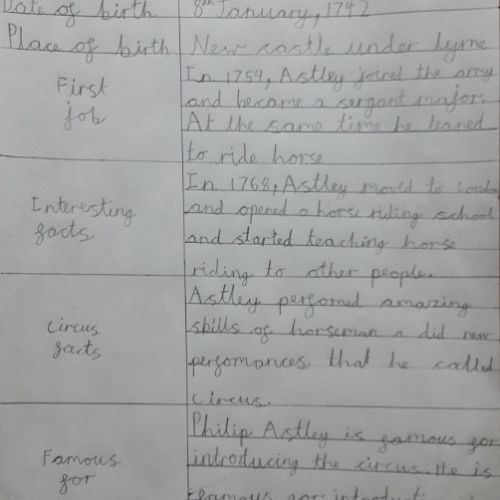 Date of birth 8th January, 1742
Place of birth New castle under lyme
First job
In 1759, Astley joined the army
and became a sergant major.
At the same time he leaned
to ride horse
Interesting facts
In 1768, Astley moved to London
and opened a horse riding school
and started teaching horse
riding to other people.
Circus facts
Astley perfomed amazing
skills of horseman a did new
perfomances that he called
circus.
Famous for
Philip Astley is famous for
introducing the circus. He is
famous for